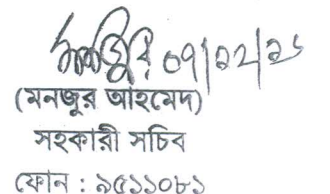 ০৭/১২/১৬
(মনজুর আহমেদ)
সহকারী সচিব
ফোন : ৯৫১১০৮১